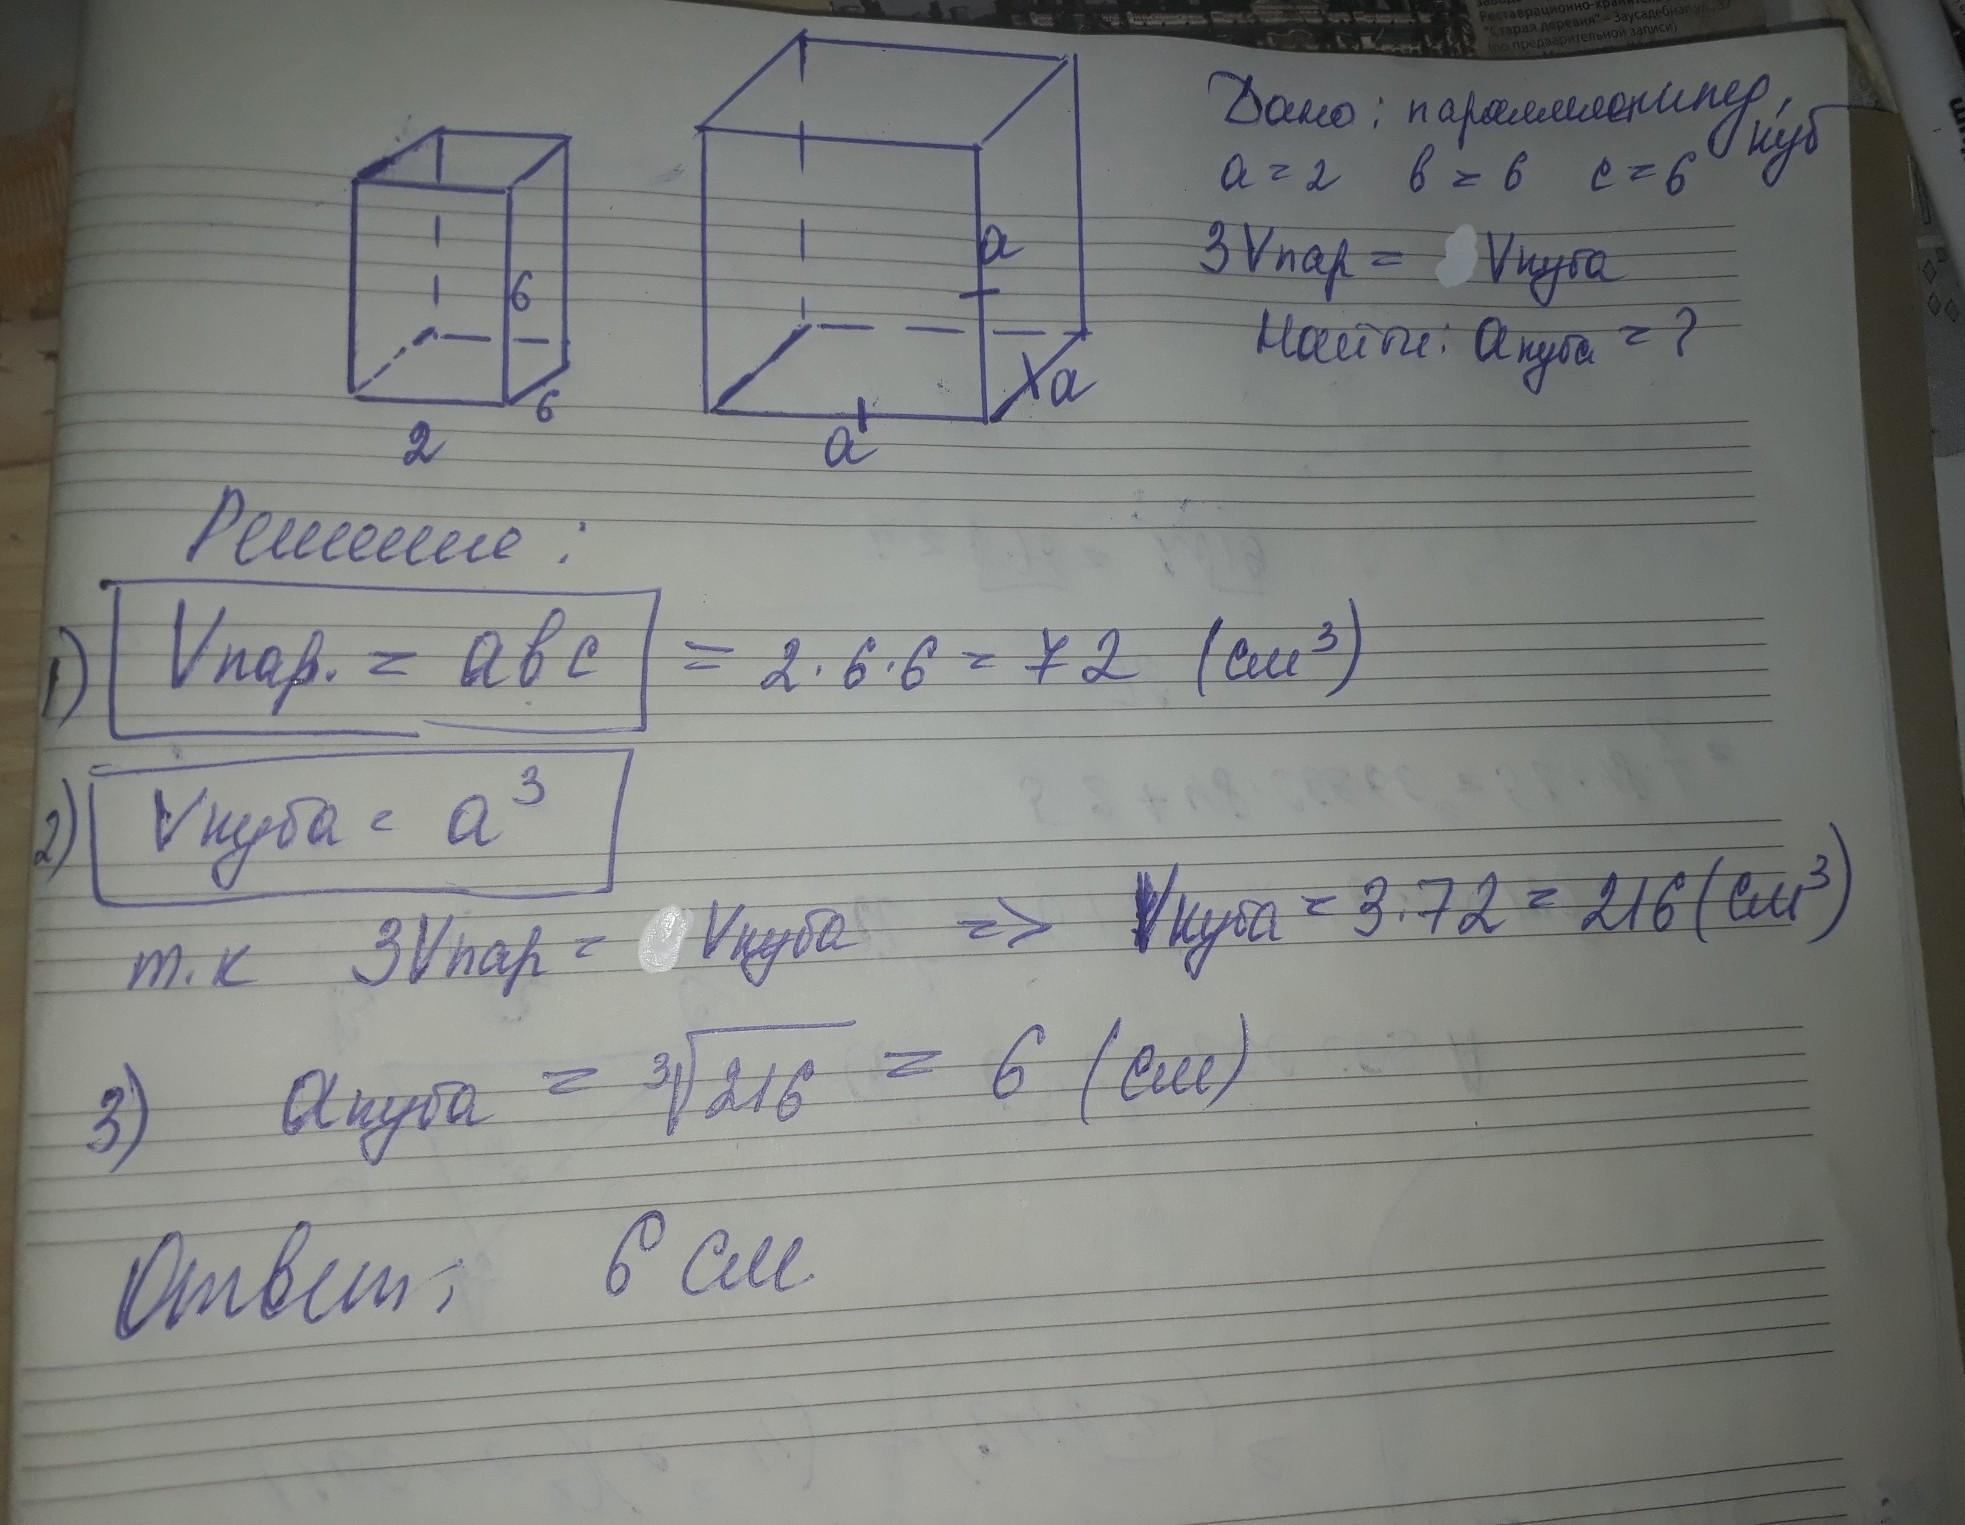 Реставрационно-хранит
"Старая деревня" – Заусадебная ул., 37
(по предварительной записи)
Дано: параллелепипед,
куб
a = 2 в = 6 c = 6
3Vпар = Vкуба
Найти: aкуба = ?
6
6
2
a
a
a
Решение:
1) Vпар. = aвc = 2·6·6 = 72 (см³)
2) Vкуба = a³
т.к 3Vпар = Vкуба => Vкуба = 3·72 = 216 (см³)
3) aкуба = ³√216 = 6 (см)
Ответ: 6 см